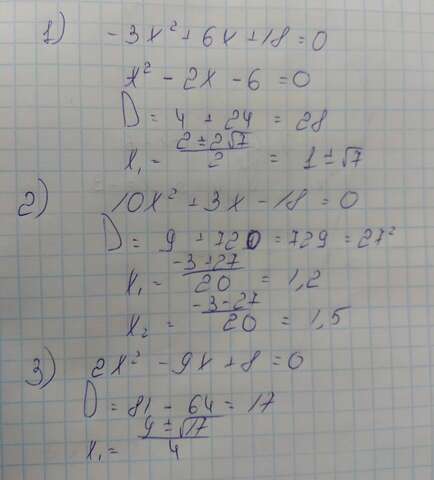 1) -3x² + 6x + 18 = 0
x² - 2x - 6 = 0
D = 4 + 24 = 28
x₁ = (2 ± 2√7)/2 = 1 ± √7
2) 10x² + 3x - 18 = 0
D = 9 + 720 = 729 = 27²
x₁ = (-3+27)/20 = 1,2
x₂ = (-3-27)/20 = 1,5
3) 2x² - 9x + 8 = 0
D = 81 - 64 = 17
x₁ = (9 ± √17)/4